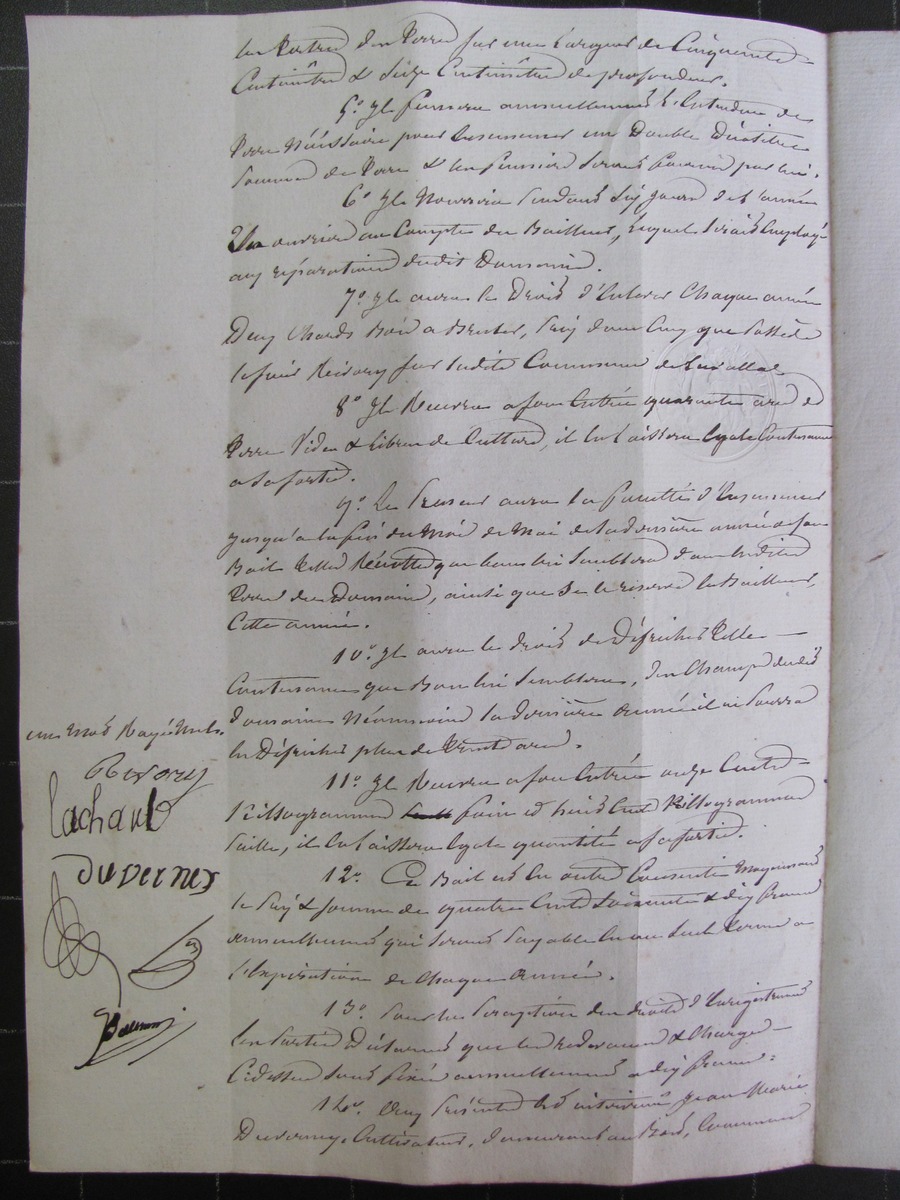 les Portera des Terre sur une Largeur de Cinquante
Centimètres & Seize Centimètres de profondeur.
5°. Il fumera annuellement L'Entendue de
Terre Nécessaire pour Ensemencer un Double Décalitre
Semence de Terre & les fumier seront fournis par lui.
6° Il Nourrira Pendant Six jours de l'année
Un ouvrier au Compte du Bailleur, Lequel serait Employé
aux réparations dudit Domaine.
7° Il aura le Droit d'Enlever Chaque année
Deux Chards Bois a Bruler, pris dans Ceux que Possède
le sieur Revory sur ladite Commune de
8° Il Recevra a son Entrée quarante ares de
Terre Vides & libres de Cultures, il en Laissera Egale Contenance
a Sa sortie.
9° Le Preneur aura la faculté d'Ensemencer
jusqu'a la fin du Mois de Mai de la dernière année a son
Bail telles Récoltes que bon lui Semblera dans lesdites
Terres du Domaine, ainsi que Se le réserve le Bailleur
Cette année.
10°. Il aura le droit de Défricher telle
Contenance que Bon lui Semblera, des Champs dudit
domaine Néanmoins la dernière année il ne Pourra
en Défricher plus de Trente ares.
11° Il Recevra a son Entrée onze Cents
Killogrammes foin et huit Cent Killogrammes
Paille, il en Laissera Egale quantité a sa sortie.
12° Ce Bail est En outre Consenti Moyennant
le Prix & somme de quatre Cents Soixante & dix francs
annuellement qui seront Payable En un Seul Terme a
L'Expiration de Chaque Année.
13° Pour la Perception des droits d'Enregistrement
les Parties Déclarent que les Redevances & Charges
Cidessus sont fixées annuellement a dix francs.
14°. Aux Présentes Est intervenu Jean Marie
Duverney Cultivateur, demeurant au Bost, Commune
un Mot Rayé Nul.
Revory
Lachard
Duverney